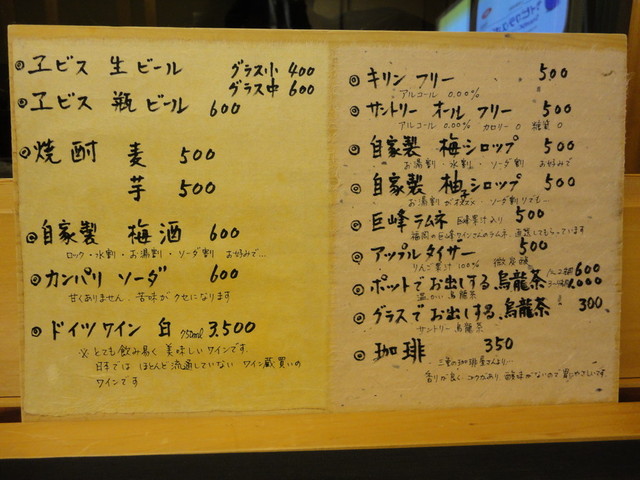 ◎ヱビス 生ビール グラス小 400
グラス中 600
◎ヱビス 瓶ビール 600
◎焼酎 麦 500
芋 500
◎自家製 梅酒 600
ロック・水割・お湯割・ソーダ割 お好みで…
◎カンパリ ソーダ 600
甘くありません 苦味がクセになります
◎ドイツワイン 白 750ml 3,500
※とても飲み易く 美味しいワインです
日本では ほとんど流通していない ワイン蔵買いの
ワインです
◎キリン フリー 500
アルコール 0.00%
◎サントリー オール フリー 500
アルコール 0.00% カロリー 0 糖質 0
◎自家製 梅シロップ 500
お湯割・水割・ソーダ割 お好みで
◎自家製 柚子シロップ 500
お湯割がオススメ ソーダ割りでも…
◎巨峰ラムネ 巨峰果汁入り 500
福岡の巨峰ワインさんのラムネ 直送してもらっています
◎アップルタイザー 500
りんご果汁 100% 微炭酸
◎ポットでお出しする、烏龍茶 600
温かい 烏龍茶 1,000
◎グラスでお出しする、烏龍茶 300
サントリー 烏龍茶
◎珈琲 350
三重の珈琲屋さんより…
香りが良く コクがあり 酸味がないので 飲みやすいです